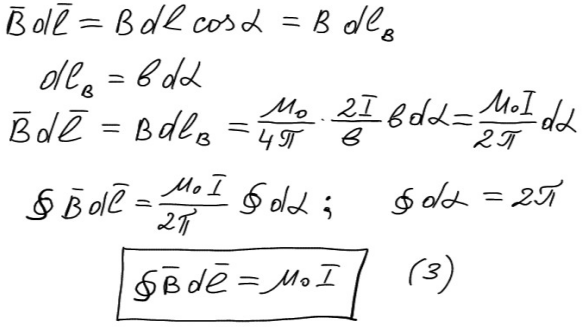 B̄dℓ̄ = B dℓ cosα = B dℓ_B
dℓ_B = b dα
B̄dℓ̄ = Bdℓ_B = μ₀/4π · 2I/b bdα = μ₀I/2π dα
∮B̄dℓ̄ = μ₀I/2π ∮dα ; ∮dα = 2π
∮B̄dℓ̄ = μ₀I (3)